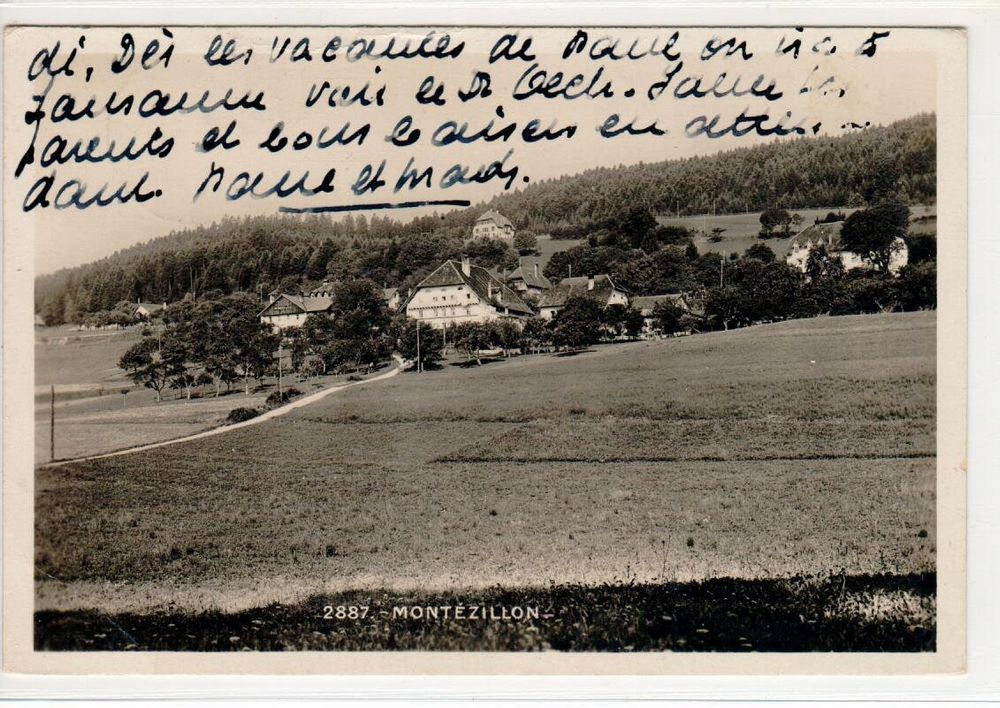 di, Dès les vacances de Paul on ira à
Lausanne voir le Dr Oech. Salue tes
parents et vous baisers en atten-
dant. Paul et Mady.
2887. - MONTÉZILLON -